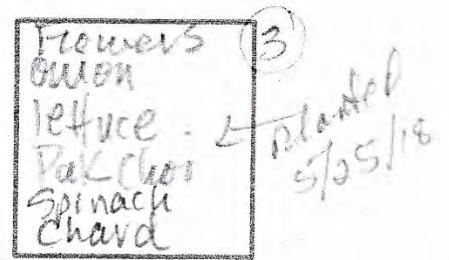 Flowers
Onion
lettuce.
Pak Choi
Spinach
Chard
3
planted
5/25/18